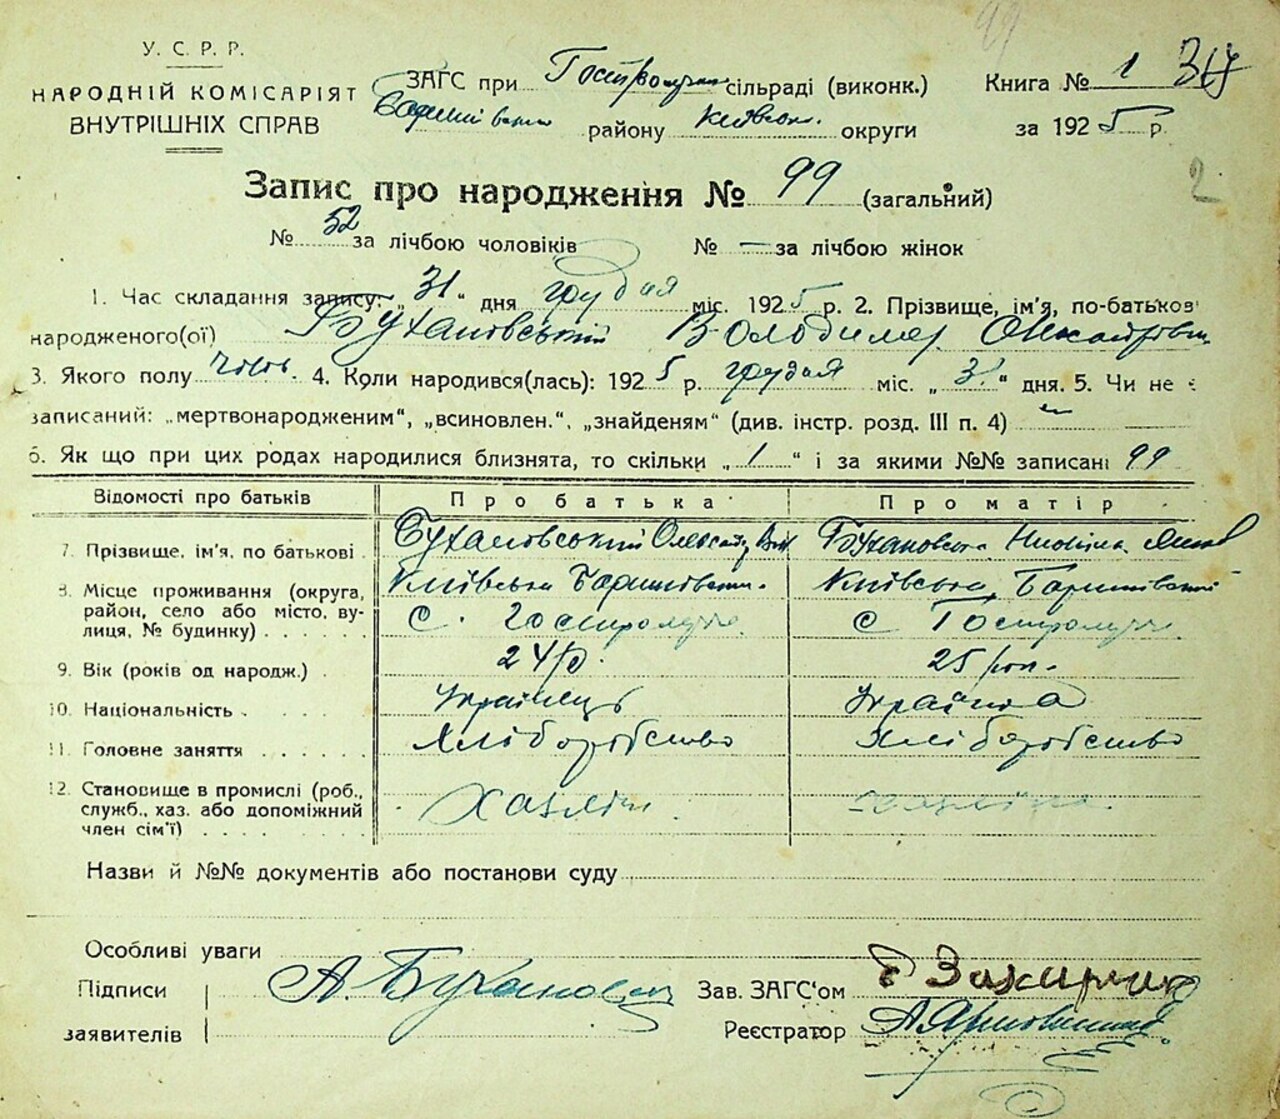 У. С. Р. Р.
НАРОДНІЙ КОМІСАРІЯТ
ВНУТРІШНІХ СПРАВ
ЗАГС при сільраді (виконк.)
району Київськ. округи
Книга № 1
за 1925 р.
Запис про народження № 99 (загальний)
№ 52 за лічбою чоловіків № — за лічбою жінок
1. Час складання запису: „31“ дня грудня міс. 1925 р. 2. Прізвище, ім'я, по-батькові
народженого(ої) Бухановський Володимер
3. Якого полу чолов. 4. Коли народився(лась): 1925 р. грудня міс. „31“ дня. 5. Чи не є
записаний: „мертвонародженим“, „всиновлен.“, „знайденям“ (див. інстр. розд. III п. 4)
6. Як що при цих родах народилися близнята, то скільки „1“ і за якими №№ записані 99
Відомості про батьків Про батька Про матір
7. Прізвище, ім'я, по батькові Бухановський Бухановська
8. Місце проживання (округа, район, село або місто, вулиця, № будинку) Київська Київська
с. с
9. Вік (років од народж.) 24 р. 25 рок.
10. Національність Українець Українка
11. Головне заняття Хліборобство Хліборобство
12. Становище в промислі (роб., служб., хаз. або допоміжний член сім'ї) Хазяїн
Назви й №№ документів або постанови суду
Особливі уваги
Підписи
заявителів
А. Буханов
Зав. ЗАГС'ом
Реєстратор